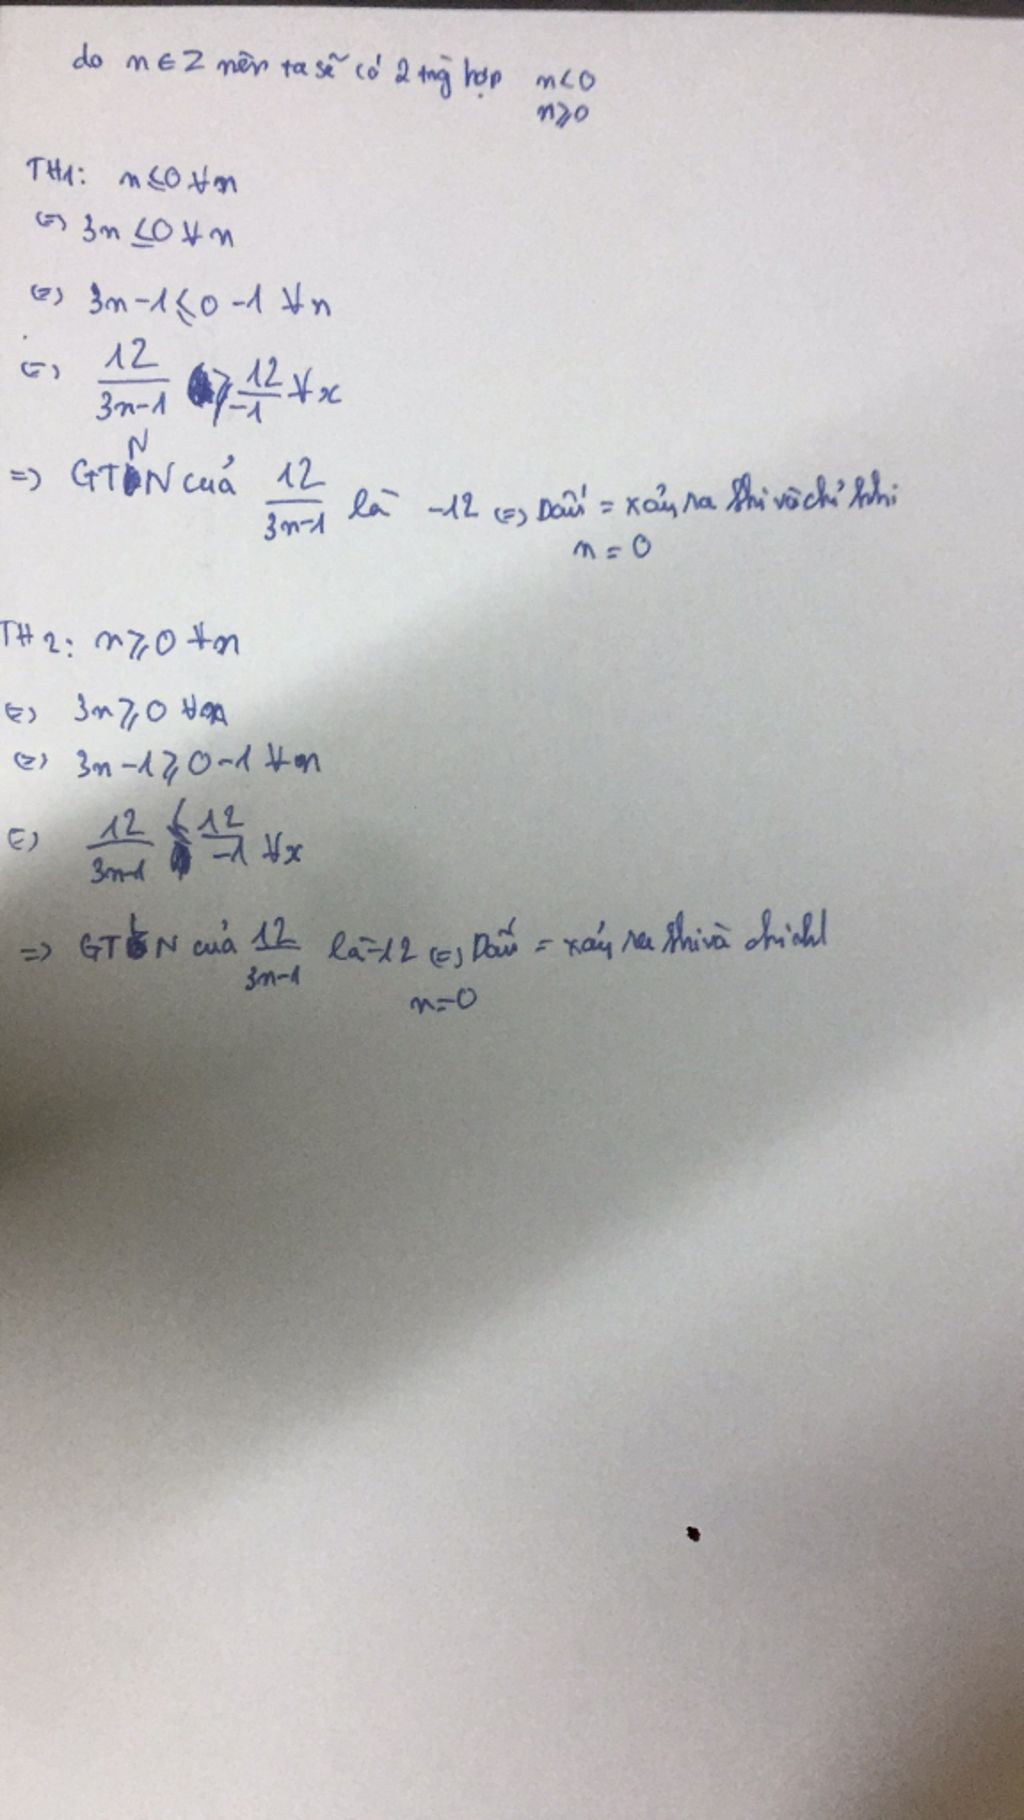 do n ∈ Z nên ta sẽ có 2 trg hợp n<0
n⩾0
TH1: n⩽0 ∀n
⇔ 3n ≤0 ∀n
⇔ 3n-1⩽0-1 ∀n
⇔ 12/3n-1 ⩾ 12/-1 ∀x
⇒ GTNN của 12/3n-1 là -12 ⇔ Dấu = xảy ra khi và chỉ khi
n = 0
TH2: n⩾0 ∀n
⇔ 3n⩾0 ∀n
⇔ 3n-1⩾0-1 ∀n
⇔ 12/3n-1 ⩽ 12/-1 ∀x
⇒ GTLN của 12/3n-1 là -12 ⇔ Dấu = xảy ra khi và
n=0